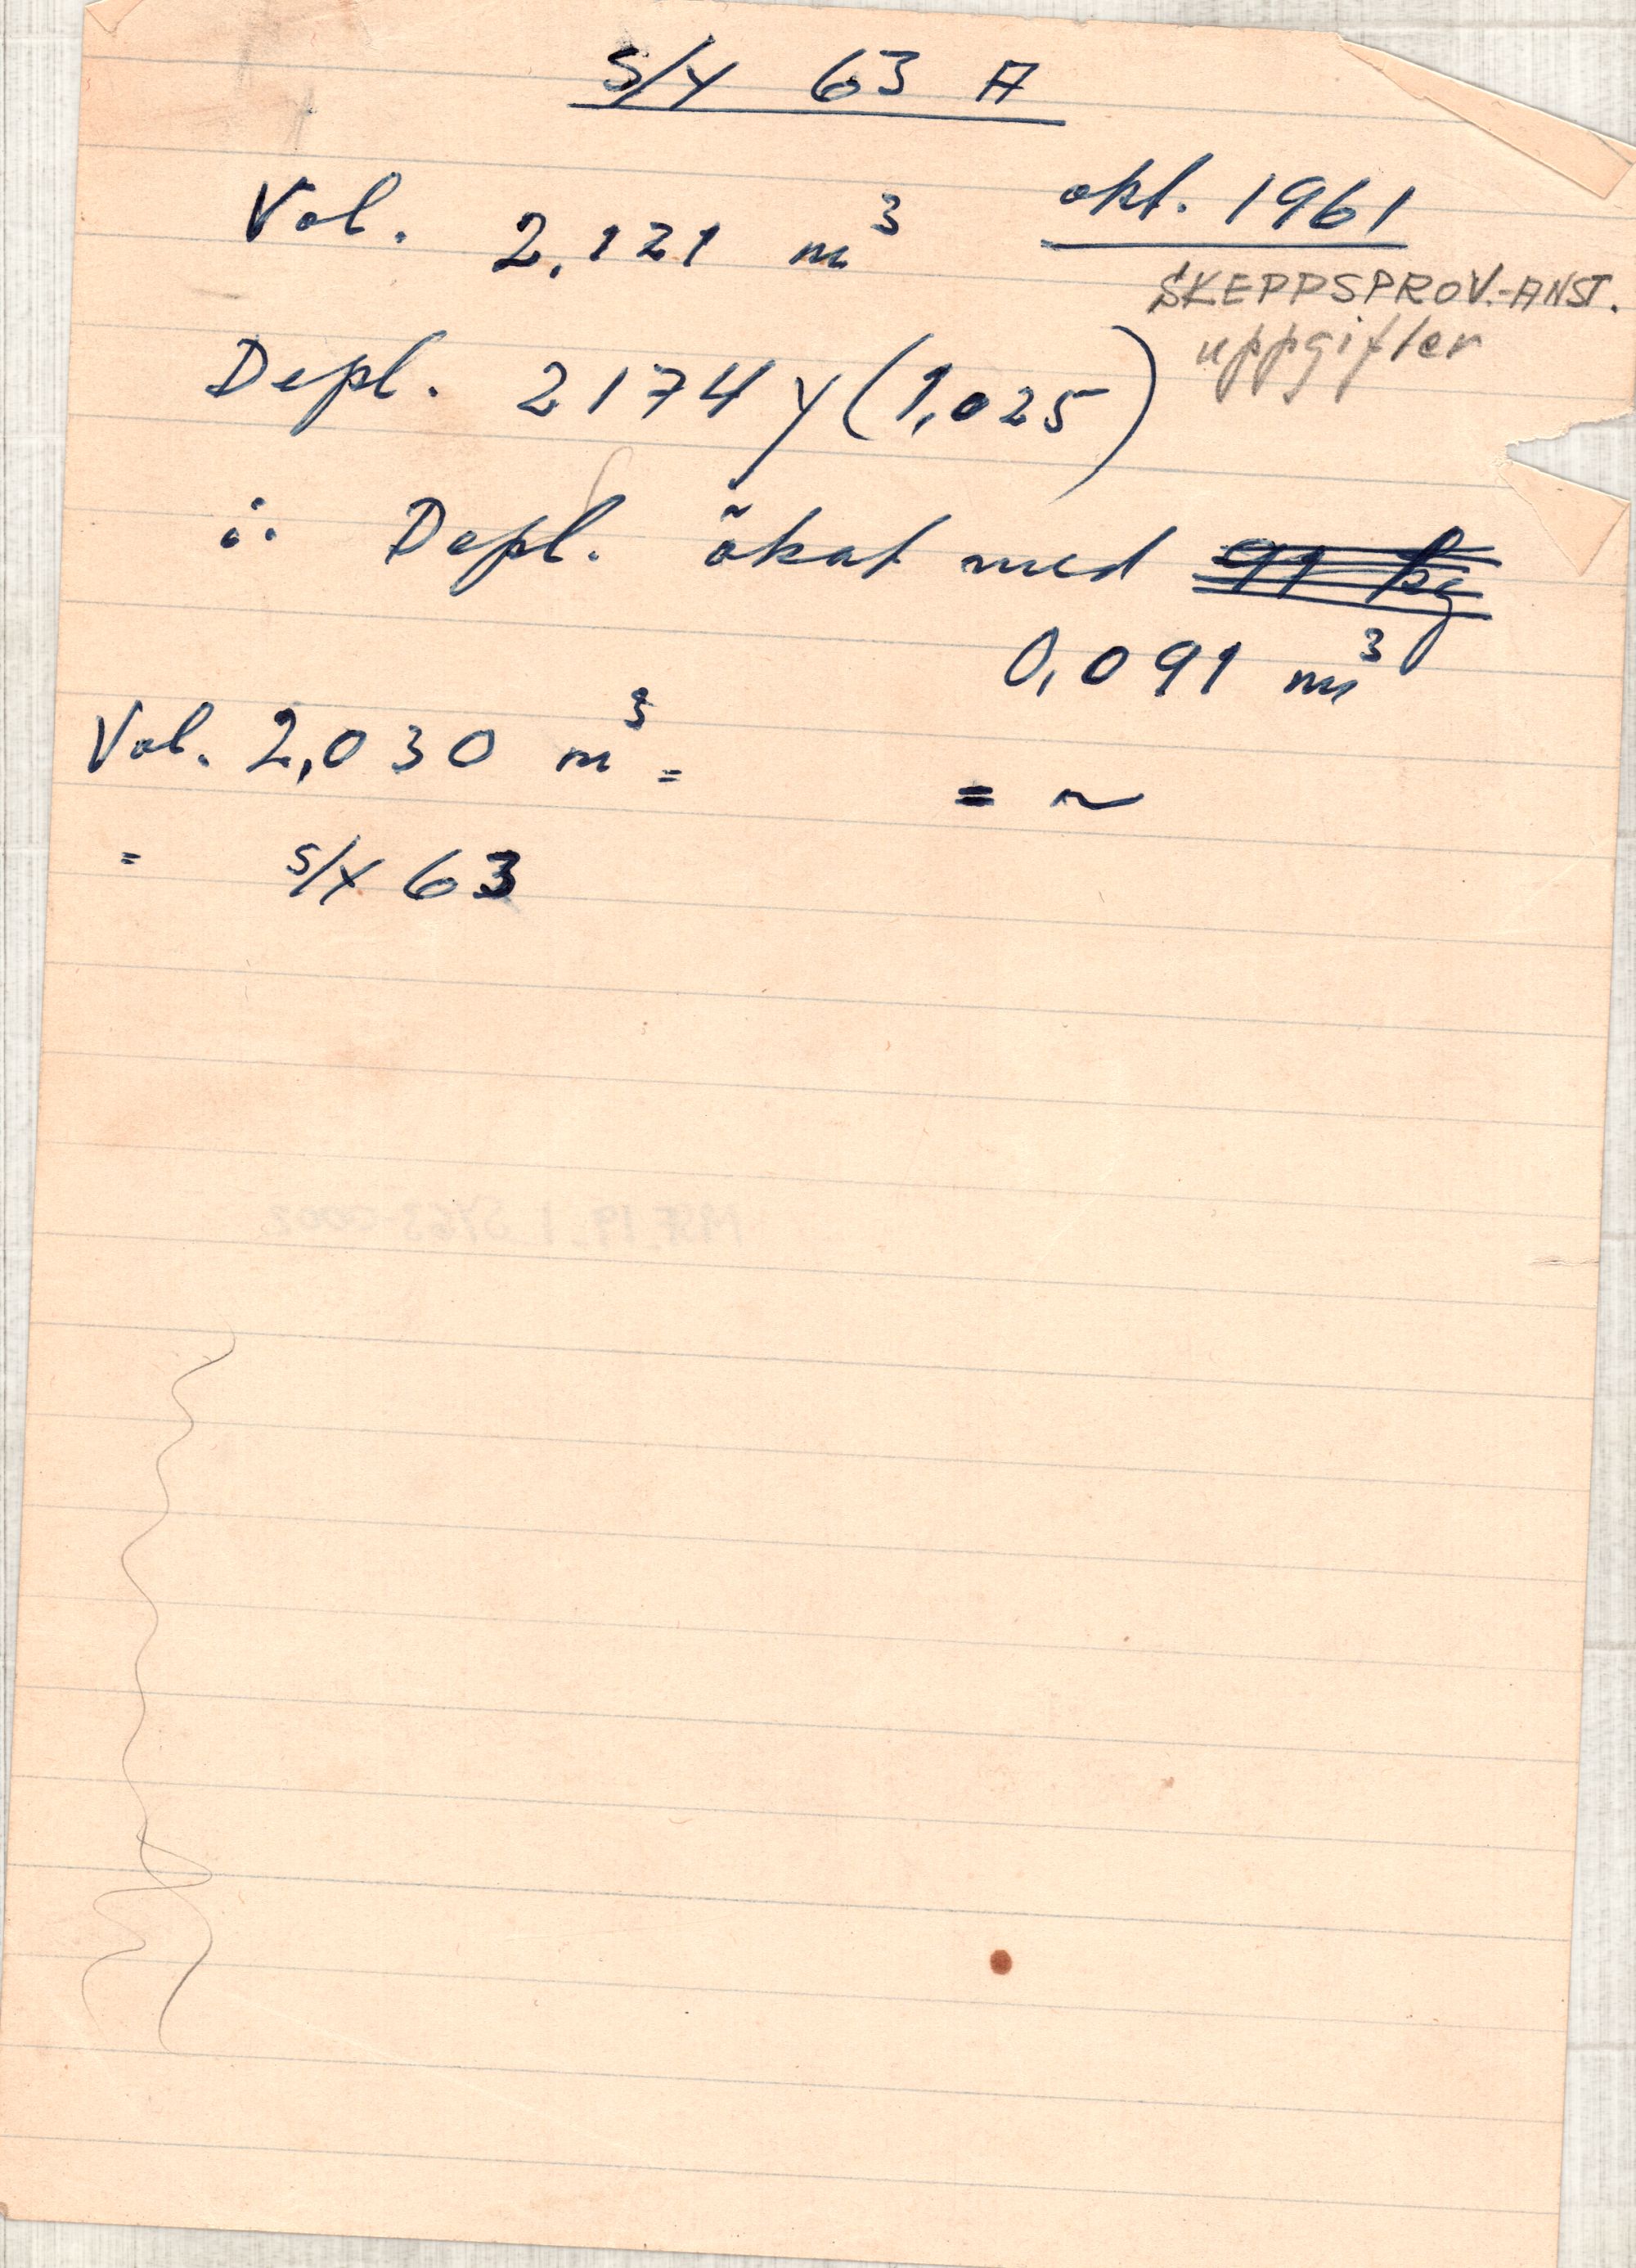 S/Y 63 A
Vol. 2,121 m³ okt. 1961
SKEPPSPROV.-ANST.
uppgifter
Depl. 2174 γ (1,025)
∴ Depl. ökat med 91 kg
0,091 m³
Vol. 2,030 m³ =
= ~
= S/Y 63